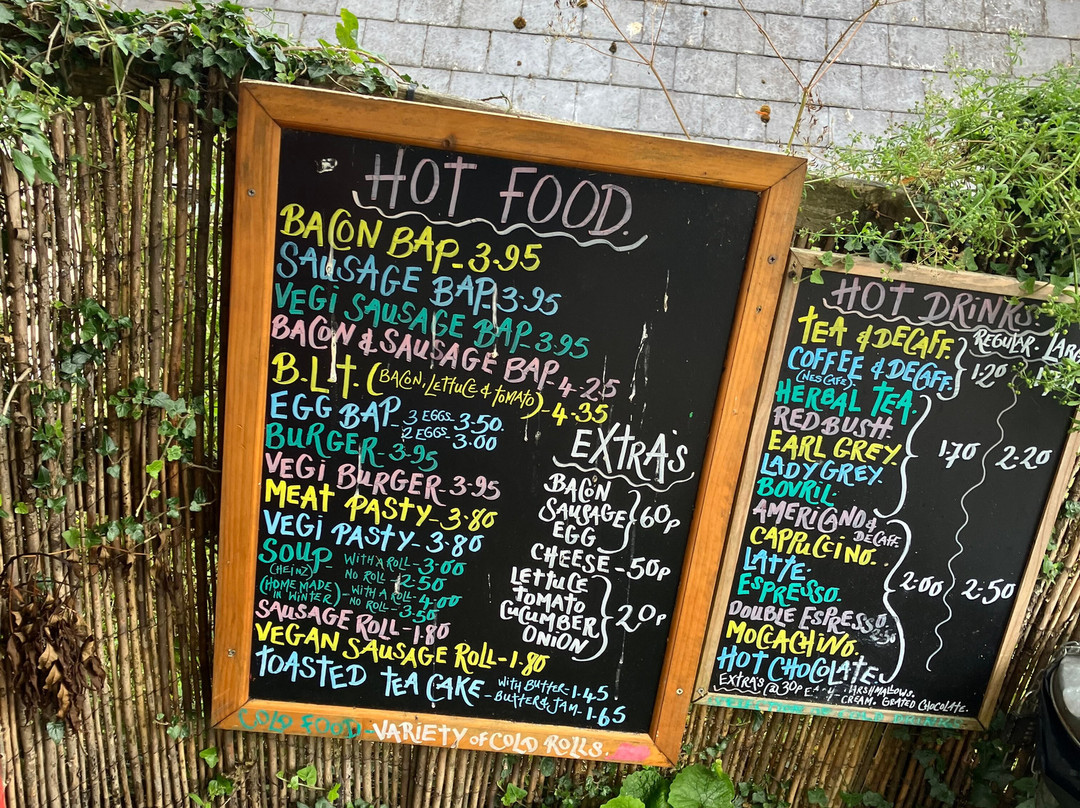 HOT FOOD.
BACON BAP - 3.95
SAUSAGE BAP - 3.95
VEGI SAUSAGE BAP - 3.95
BACON & SAUSAGE BAP - 4.25
B.L.T. (BACON, LETTUCE & TOMATO) - 4.35
EGG BAP - 3 EGGS - 3.50.
2 EGGS - 3.00
BURGER - 3.95
VEGI BURGER - 3.95
MEAT PASTY - 3.80
VEGI PASTY - 3.80
SOUP WITH A ROLL - 3.00
(HEINZ) NO ROLL - 2.50
(HOME MADE IN WINTER) - WITH A ROLL - 4.00
NO ROLL - 3.50
SAUSAGE ROLL - 1.80
VEGAN SAUSAGE ROLL - 1.80
TOASTED TEA CAKE - WITH BUTTER - 1.45.
- BUTTER & JAM - 1.65
EXTRA'S
BACON
SAUSAGE 60p
EGG
CHEESE - 50p
LETTUCE
TOMATO
CUCUMBER 20p
ONION
COLD FOOD - VARIETY OF COLD ROLLS.
HOT DRINKS.
REGULAR.
TEA & DECAFF.
COFFEE & DECAFF. 1.20
(NESCAFE)
HERBAL TEA.
RED BUSH.
EARL GREY. 1.70 2.20
LADY GREY.
BOVRIL.
AMERICANO & DECAFF
CAPPUCCINO.
LATTE.
ESPRESSO. 2.00 2.50
DOUBLE ESPRESSO. 2.50
MOCCACHINO.
HOT CHOCOLATE.
EXTRA'S @ 30p EACH - MARSHMALLOWS.
CREAM. GRATED CHOCOLATE.